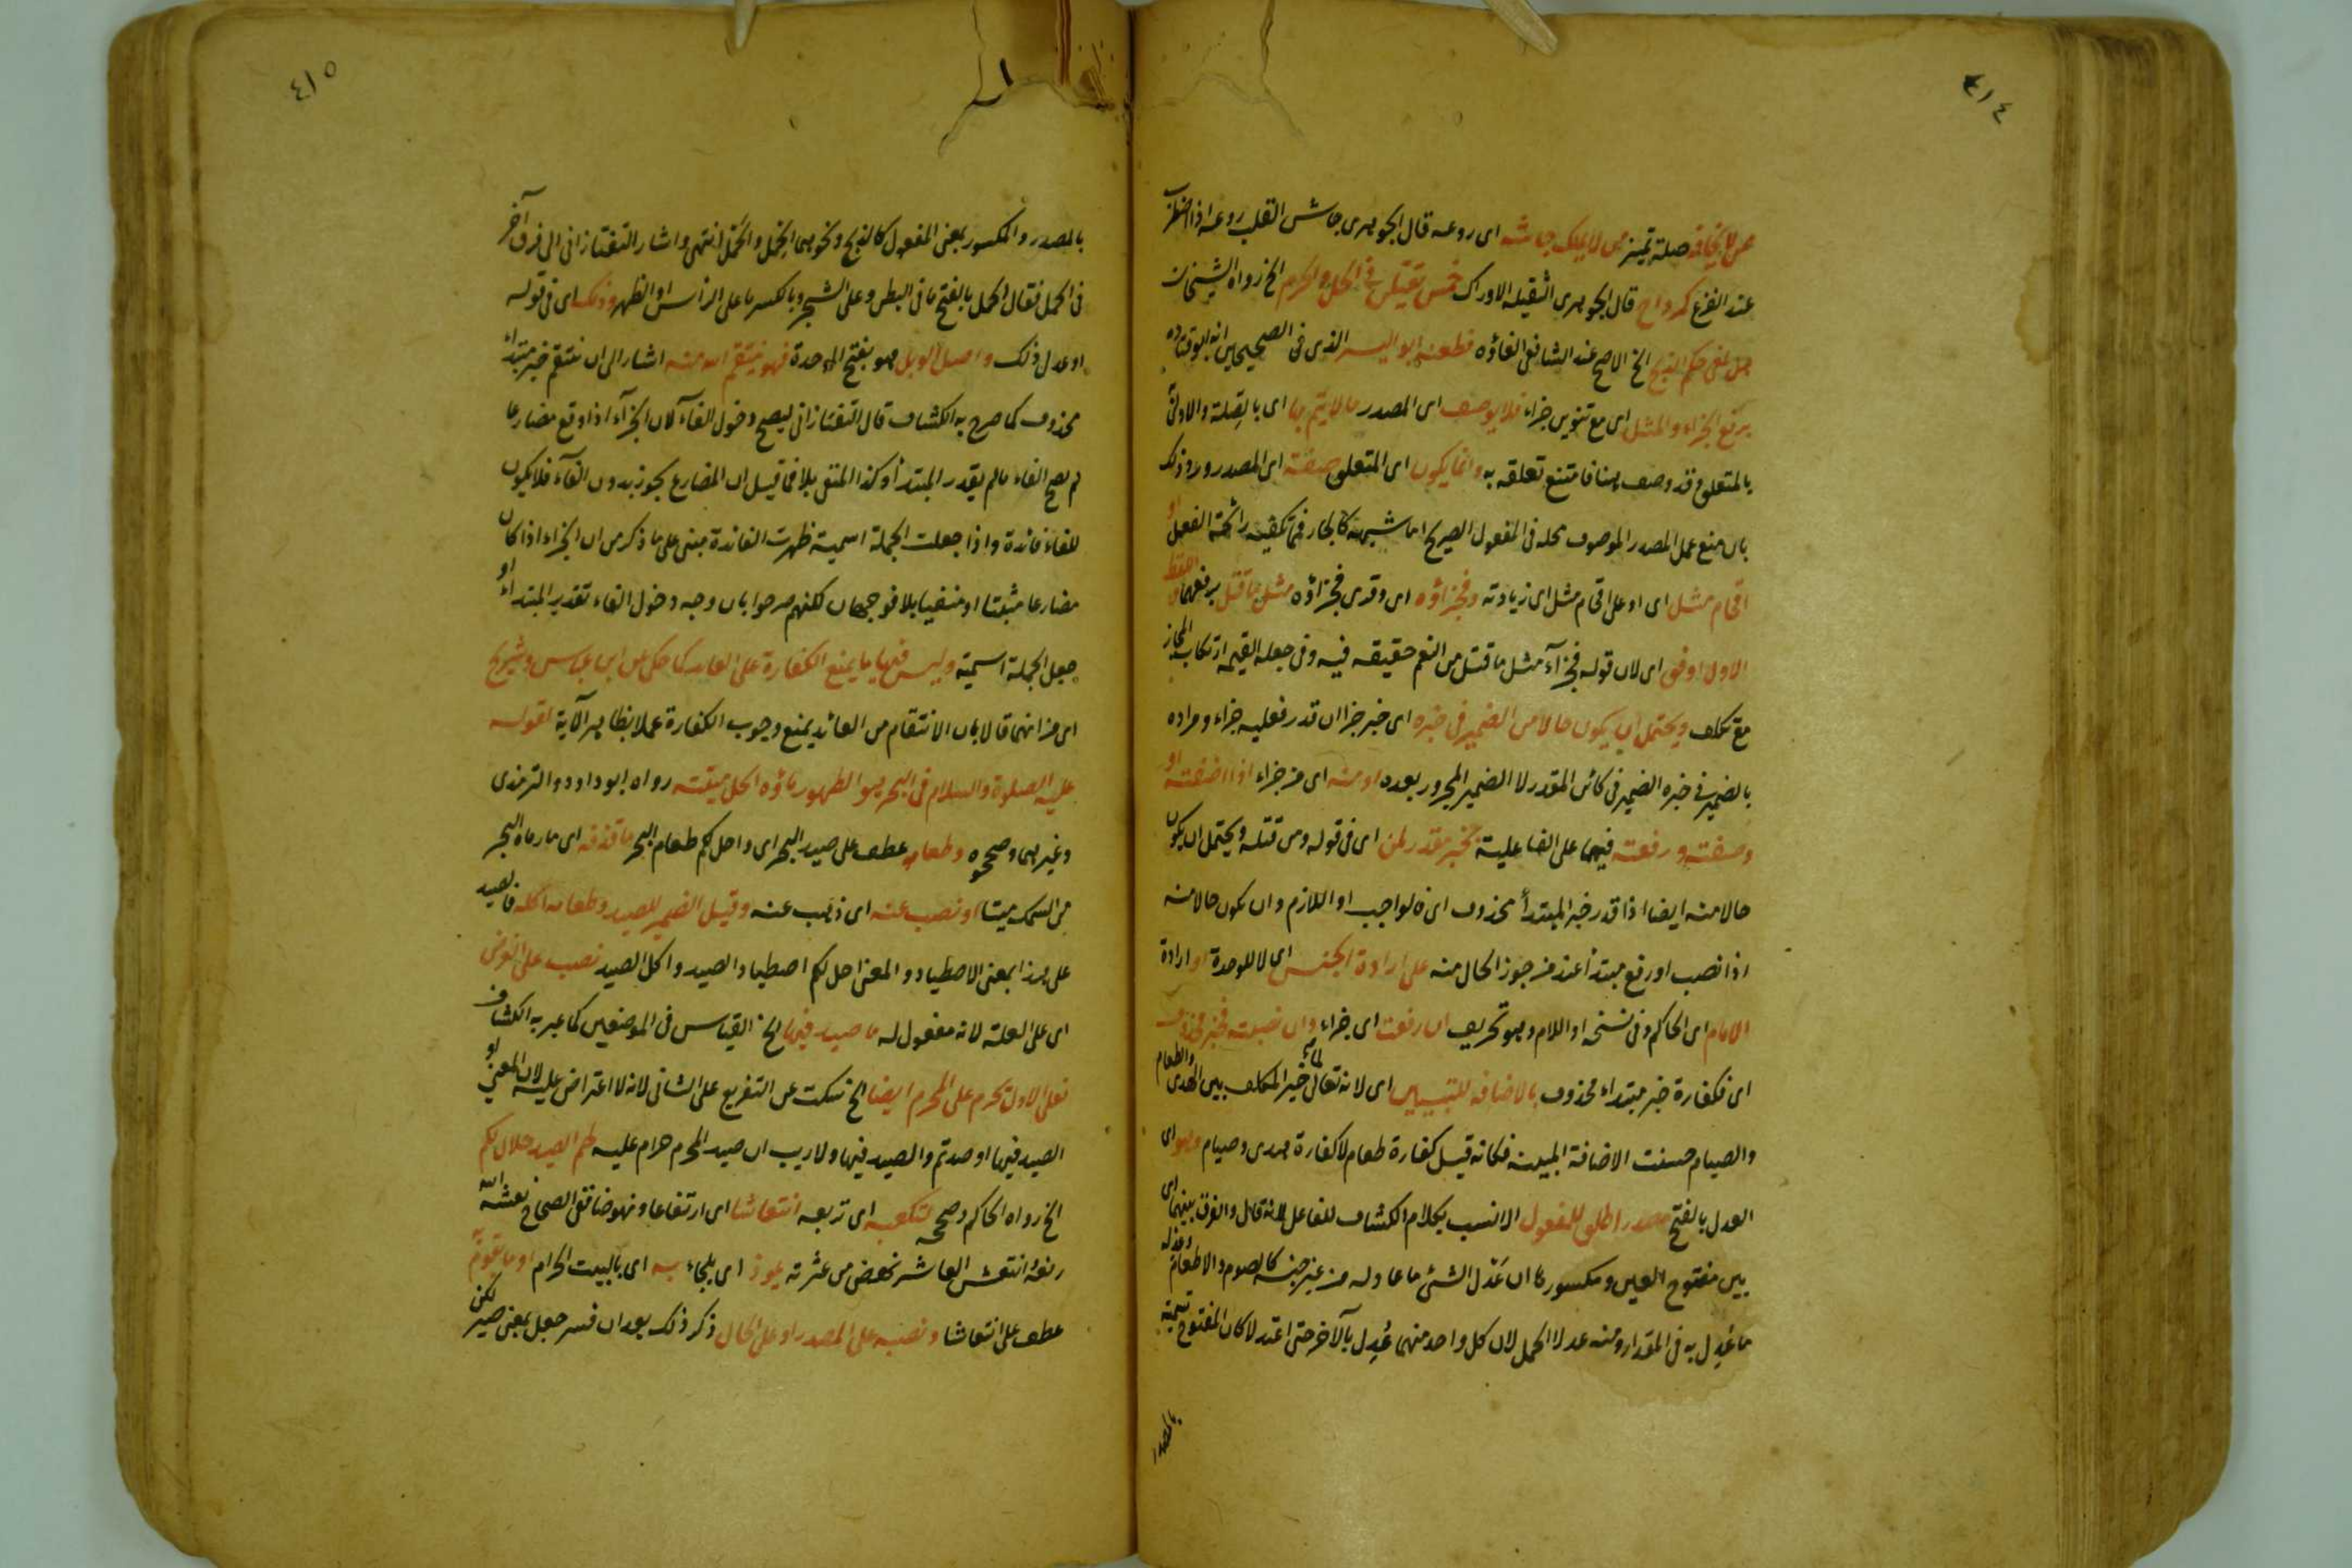 ٤١٤
ممن لا يخافه صلة تميز من لا يملك جاشه اى روعه قال الجوهرى جاش القلب روعه اذا اضطرب
عند الفزع كرداح قال الجوهرى الثقيلة الاوراك خمس يقتلن فى الحل والحرم الخ رواه الشيخان
الغى حكم الذبح الخ الاصح عند الشافعى الغاؤه فطعنه ابو اليسر الذى فى الصحيحين انه ابو قتاده
برفع الجزاء والمثل اى مع تنوين جزاء فلا يوصف اى المصدر مالا يتم بها اى بالصلة والاولى
بالمتعلق قد وصف هنا فامتنع تعلقه به وانما يكون اى المتعلق صفته اى المصدر ورد ذلك
بان منع عمل المصدر الموصوف محله فى المفعول الصريح اما شبهه كالجار فتكفيه رائحة الفعل او
اقحام مثل اى او على اقحام مثل اى زيادته وفجزاؤه اى وقرى فجزاؤه مثل ما قتل برفعهما
الاول اوفق اى لان قوله فجزآء مثل ما قتل من النعم حقيقه فيه وفى جعله القيمة ارتكاب المجاز
مع تكلف ويحتمل ان يكون حالا من الضمير فى خبره اى خبر جزا ان قدر فعليه جزاء ومراده
بالضمير فى خبره الضمير فى كائن المقدر لا الضمير المجرور بعده او منه اى من جزاء اذا اضفته او
وصفته ورفعته فيهما على الفاعلية بخبر مقدر لمن اى فى قوله ومن قتله ويحتمل ان يكون
حالا منه ايضا اذا قدر خبر المبتدأ محذوف اى فالواجب او اللازم وان يكون حالا منه
اذا نصب او رفع مبتدأ عند من جوز الحال منه على ارادة الجنس اى لا للوحدة او ارادة
الامام اى الحاكم وفى نسخه او اللام وهو تحريف ان رفعت اى جزاء وان نصبته فخبر محذوف
اى فكفارة خبر مبتداء محذوف بالاضافه للتبيين اى لانه تعالى لما خير المكلف بين الهدى والطعام
والصيام حسنت الاضافة المبينه فكانه قيل كفارة طعام لا كفارة هدى وصيام وهو اى
العدل بالفتح مصدر اطلق للمفعول الانسب بكلام الكشاف للفاعل لانه قال والفرق بينهما اى
بين مفتوح العين ومكسورها ان عَدْل الشئ ما عادله من غير جنسه كالصوم والاطعام وعِدله
ما عُدِل به فى المقدار ومنه عدلا الحمل لان كل واحد منهما عُدِل بالآخر حتى اعتدلا كان المفتوح تسمية
بالمصدر
٤١٥
بالمصدر والمكسور بمعنى المفعول كالذبح ونحوهما الحِمل والحَمل انتهى واشار التفتازانى الى فرق آخر
فى الحمل فقال الحمل بالفتح ما فى البطن وعلى الشجر وبالكسر ما على الرأس او الظهر وذلك اى فى قوله
او عدل ذلك واصل الوبل هو بفتح الموحدة فهو ينتقم الله منه اشار الى ان ينتقم خبر مبتداء
محذوف كما صرح به الكشاف قال التفتازانى ليصح دخول الفآء لان الجزآء اذا وقع مضارعا
لم يصح الفاء ما لم يقدر المبتدأ وكذا المنفى بلا فما قيل ان المضارع يجوز بدون الفآء فلا يكون
للفاء فائدة واذا جعلت الجملة اسمية ظهرت الفائدة مبنى على ما ذكر من ان الجزاء اذا كان
مضارعا مثبتا او منفيا بلا فوجهان لكنهم صرحوا بان وجه دخول الفاء تقدير المبتداء او
جعل الجملة اسمية وليس فيها ما يمنع الكفارة على العائد كما حكى عن ابن عباس وشريح
اى من انهما قالا بان الانتقام من العائد يمنع وجوب الكفارة عملا بظاهر الآية لقوله
عليه الصلوة والسلام فى البحر هو الطهور ماؤه الحل ميتته رواه ابو داود والترمذى
وغيرهما وصححوه وطعامه عطف على صيد البحر اى واحل لكم طعام البحر ما قذفه اى ما رماه البحر
من السمك ميتا او نصب عنه اى ذهب عنه وقيل الضمير للصيد وطعامه اكله فالصيد
على هذا بمعنى الاصطياد والمعنى احل لكم اصطياد الصيد واكل الصيد نصب على الغرض
اى على العلة لانه مفعول له ما صيد فيها الخ القياس فى الموضعين كما عبر به الكشاف
فعلى الاول تحرم على المحرم ايضا الخ سكت عن التفريع على الثانى لانه لا اعتراض عليه لان المعنى او
الصيد فيها او صدتم والصيد فيها ولا ريب ان صيد المحرم حرام عليه لحم الصيد حلال لكم
الخ رواه الحاكم وصححه لتكعبه اى تربعه انتعاشا اى ارتفاعا ونهوضا ففى الصحاح نعشه الله
رفعه وانتعش العاثر نهض من عثرته يلوذ اى يلجاء به اى بالبيت الحرام او ما يقوم به
عطف على انتعاشا ونصبه على المصدر او على الحال ذكر ذلك بعد ان فسر جعل بمعنى صير لكن